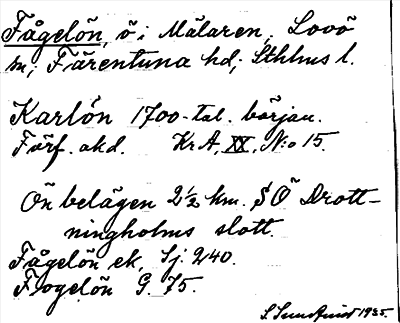 Fågelön, ö i Mälaren, Lovö
sn; Färentuna hd; Sthlms l.
Karlön 1700-tal. början.
Förf. okd. Kr A, XX, N:o 15.
Ön belägen 2½ km. S Ö Drott-
ningholms slott.
Fågelön ek. Sj. 240.
Fogelön G. 75.
S. Sundquist 1935.